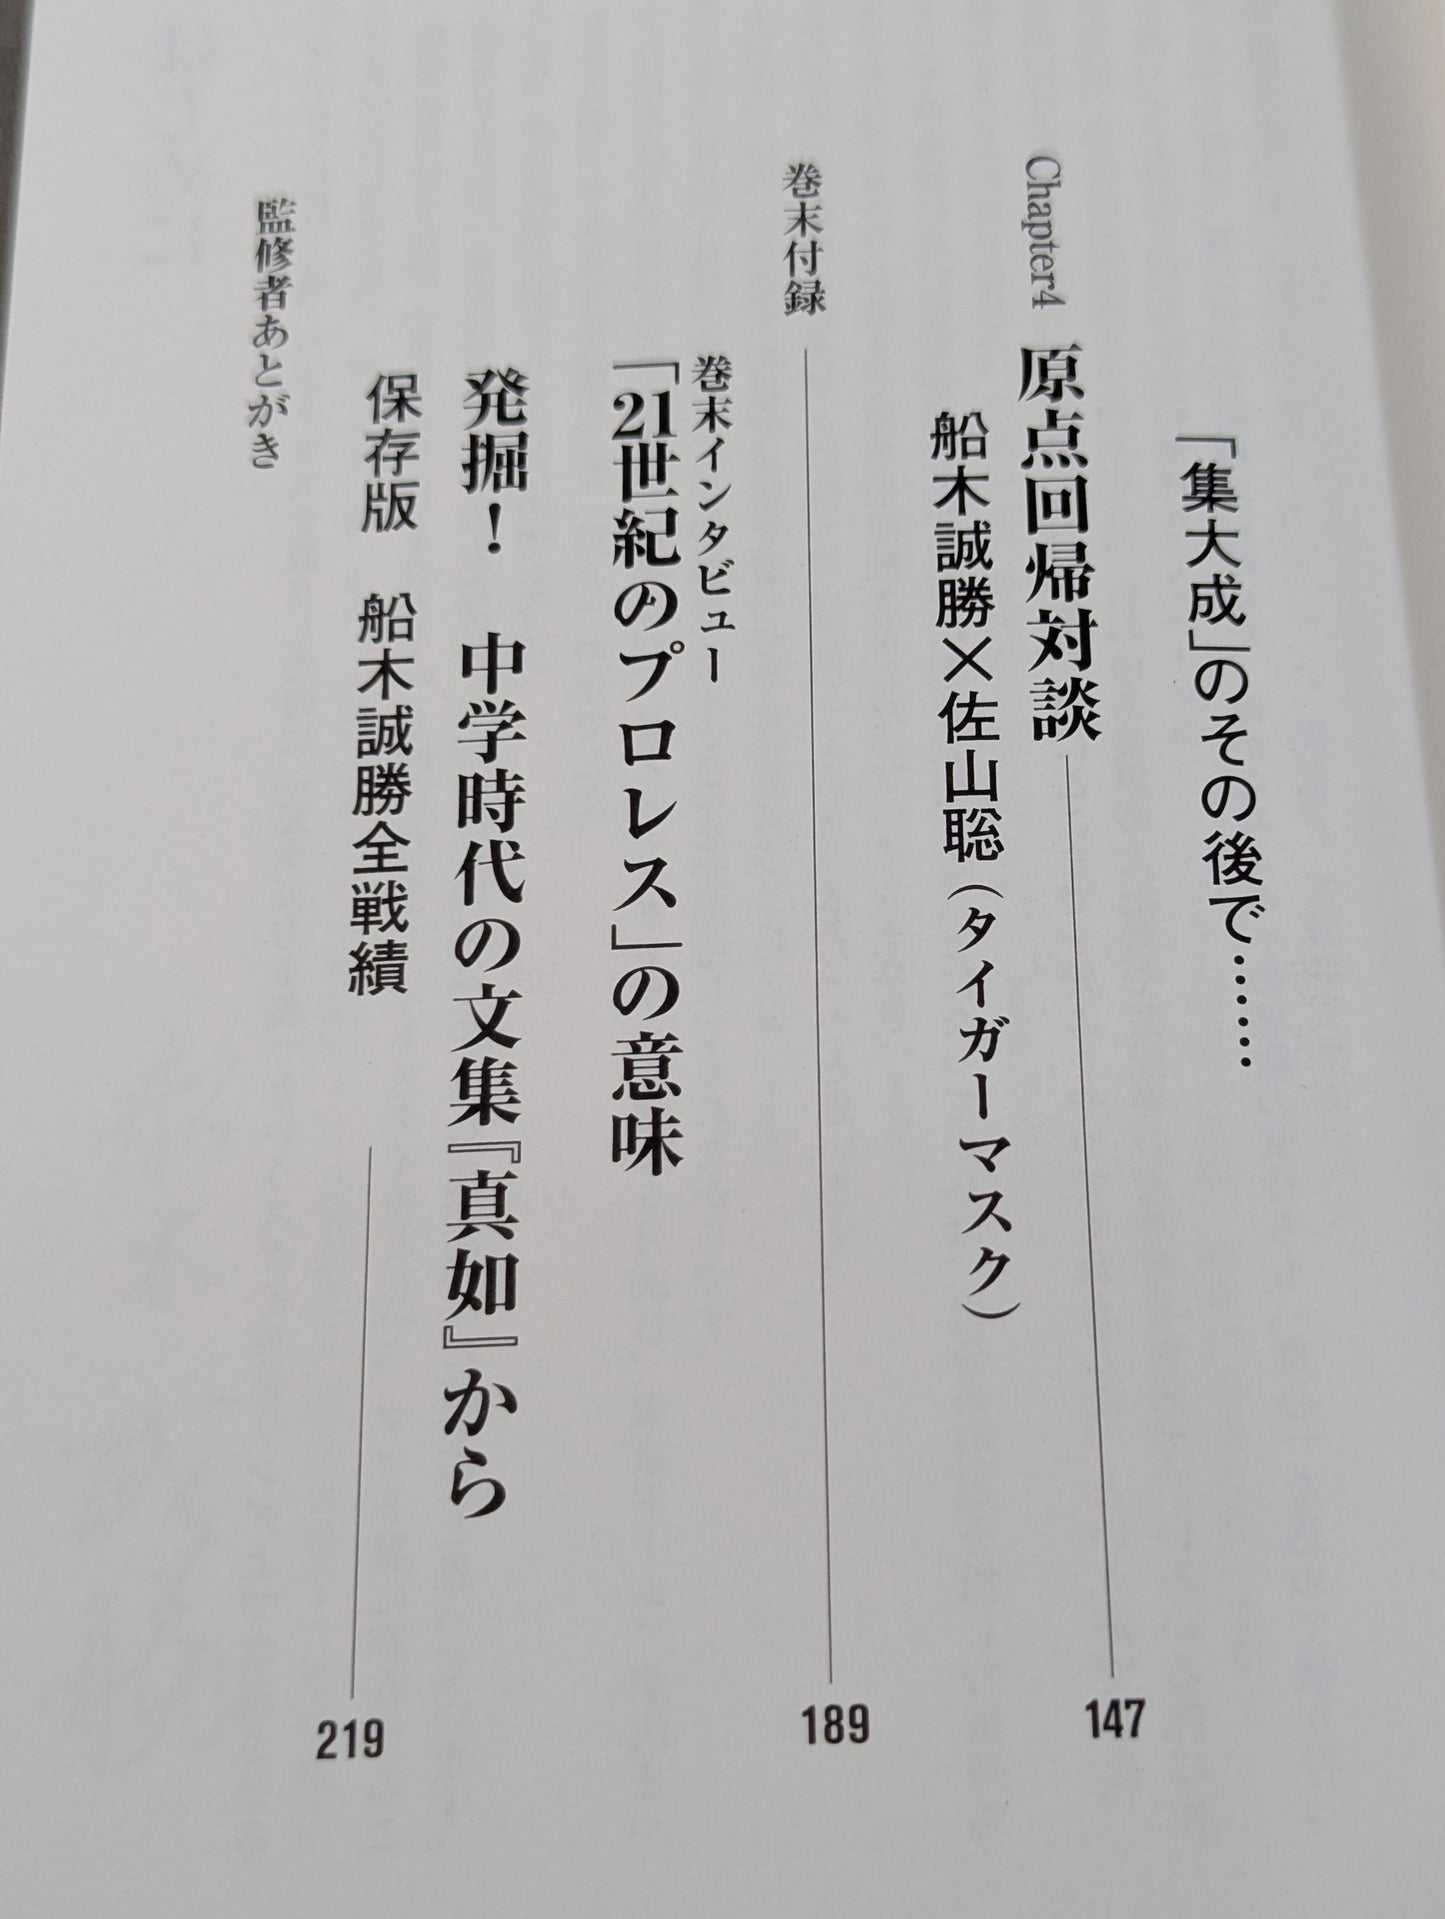 「集大成」のその後で……
Chapter4 原点回帰対談 147
船木誠勝×佐山聡（タイガーマスク）
巻末付録 189
巻末インタビュー
「21世紀のプロレス」の意味
発掘！ 中学時代の文集『真如』から
保存版 船木誠勝全戦績 219
監修者あとがき